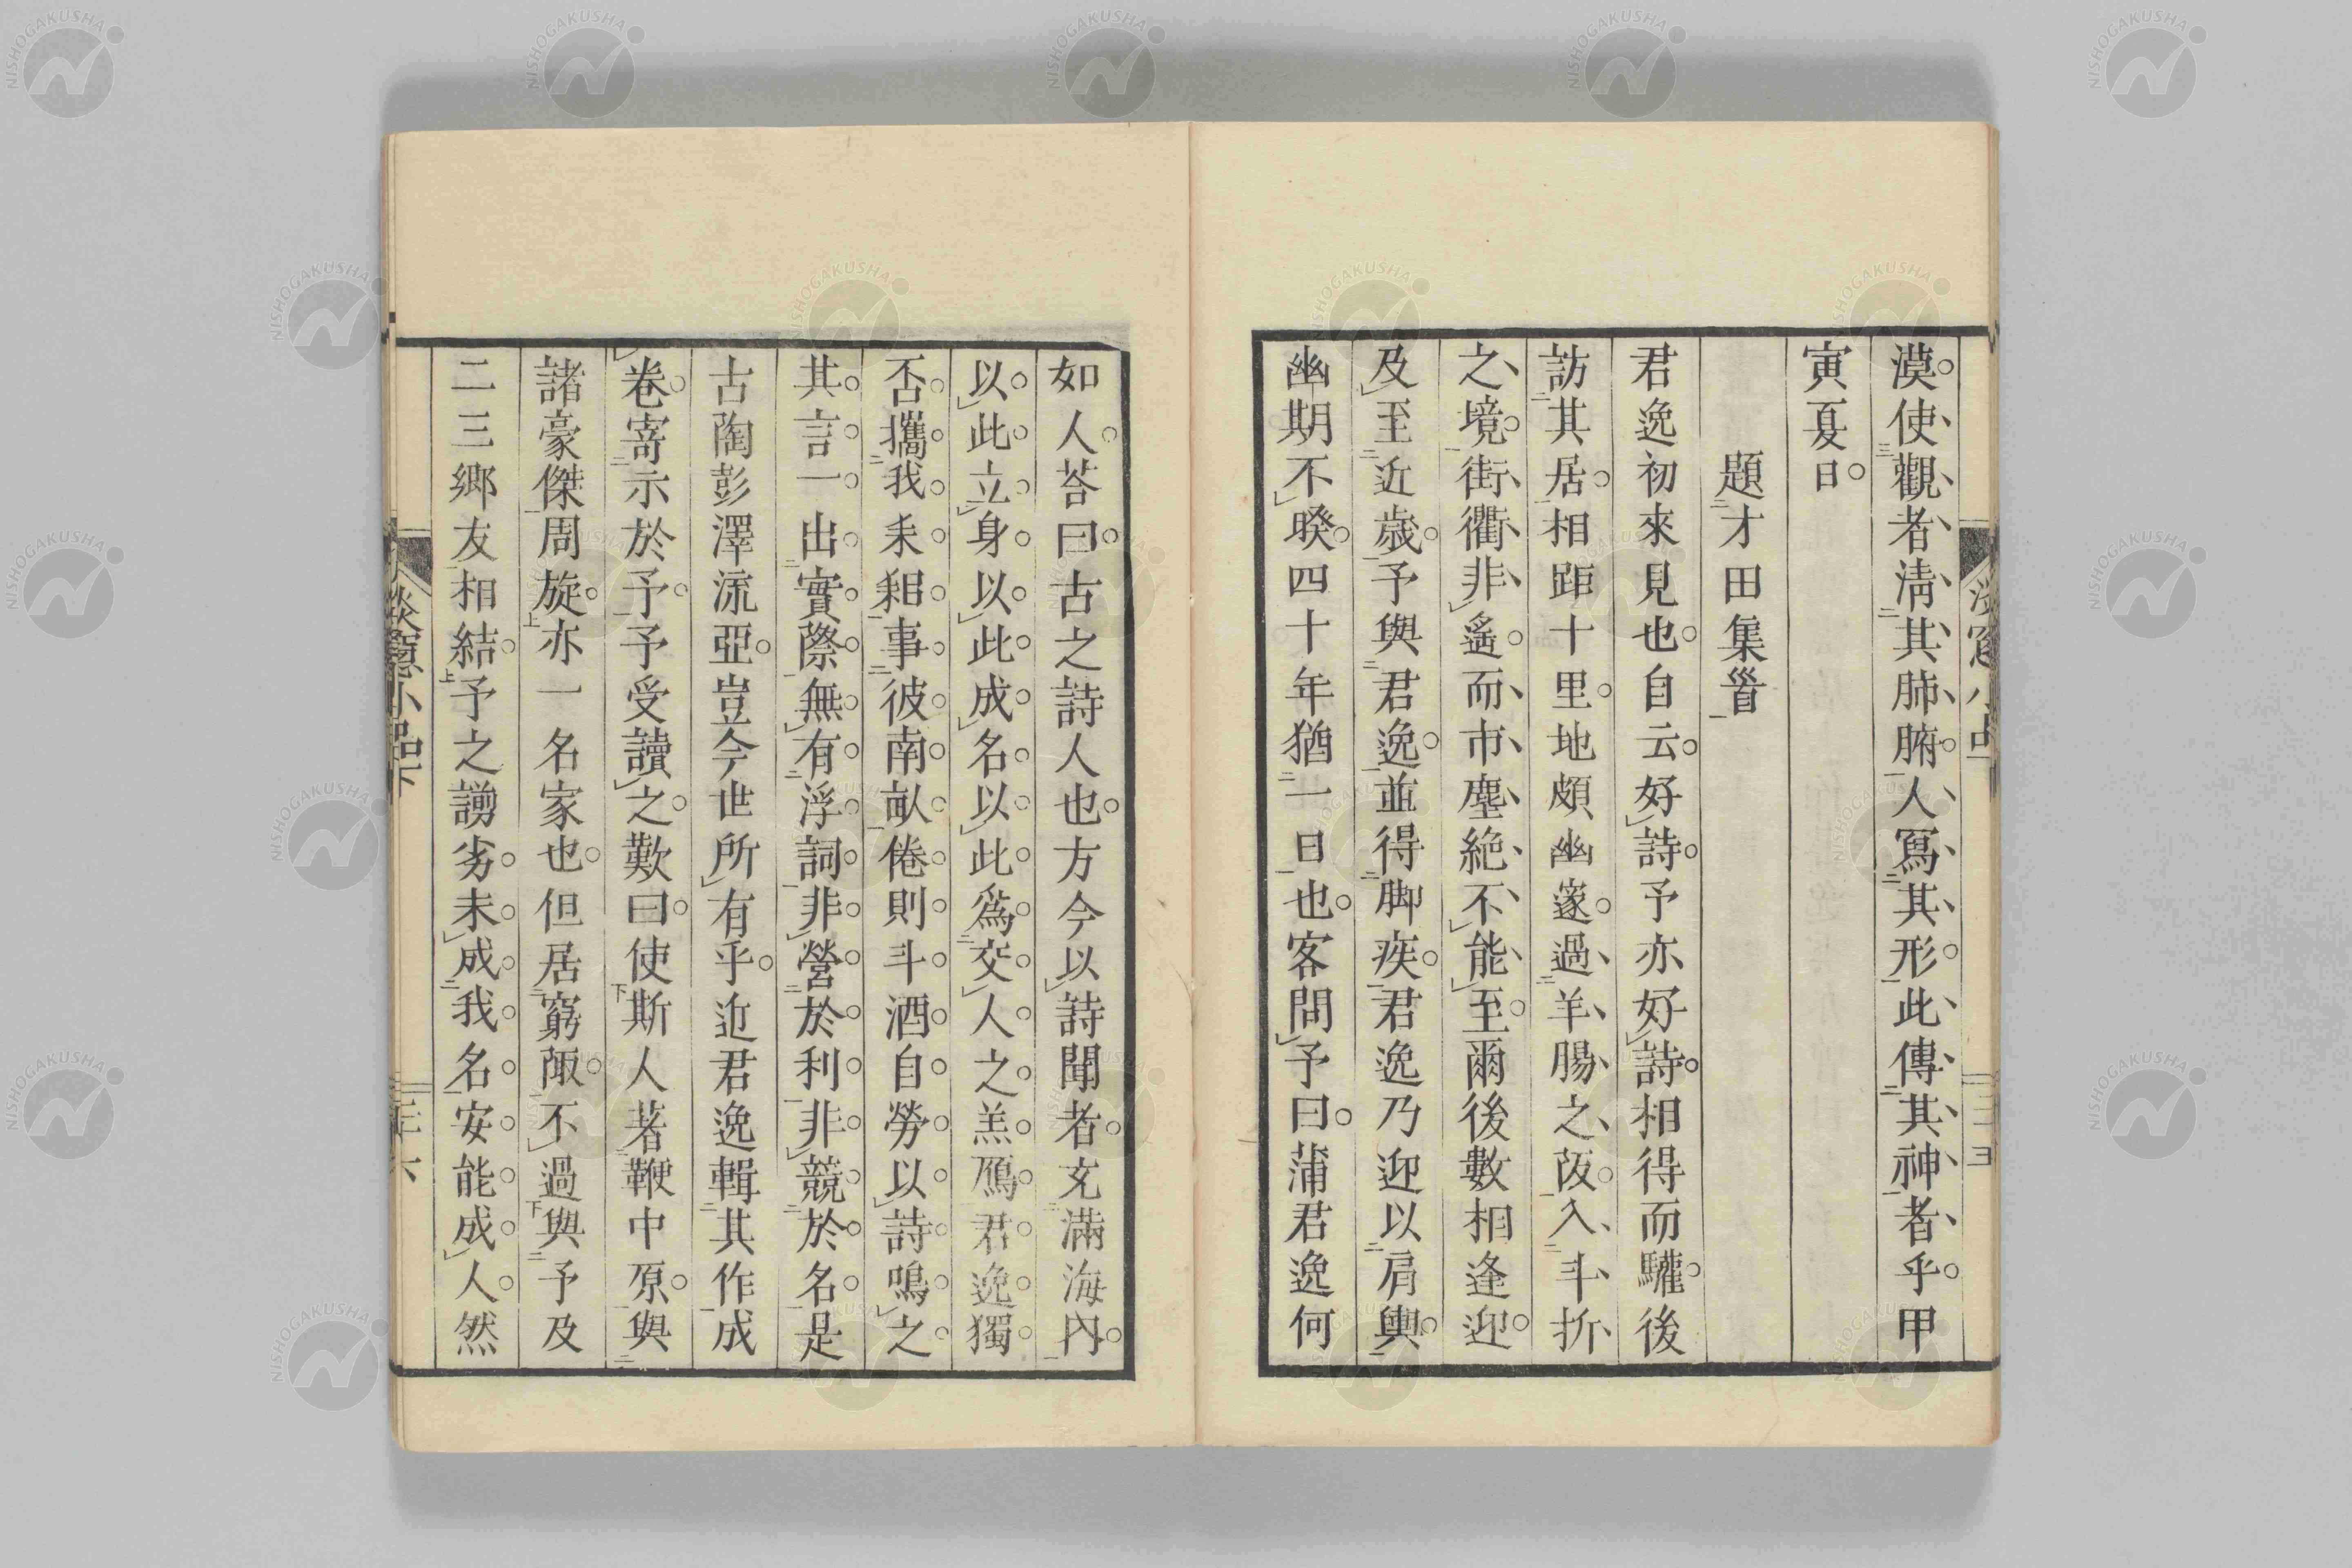 漠使觀者淸其肺腑人寫其形此傳其神者乎甲
寅夏日
題才田集首
君逸初來見也自云好詩予亦好詩相得而驩後
訪其居相距十里地頗幽邃過羊腸之阪入斗折
之境街衢非遙而市塵絶不能至爾後數相逢迎
及至近歲予與君逸並得脚疾君逸乃迎以肩輿
幽期不暌四十年猶一日也客問予曰蒲君逸何
如人荅曰古之詩人也方今以詩聞者充滿海內
以此立身以此成名以此爲交人之羔鴈君逸獨
否攜我耒耜事彼南畝倦則斗酒自勞以詩鳴之
其言一出實際無有浮詞非營於利非競於名是
古陶彭澤流亞豈今世所有乎近君逸輯其作成
卷寄示於予予受讀之歎曰使斯人著鞭中原與
諸豪傑周旋亦一名家也但居窮陬不過與予及
二三鄉友相結予之謭劣未成我名安能成人然
淡窻小品下
三十六
NISHOGAKUSHA